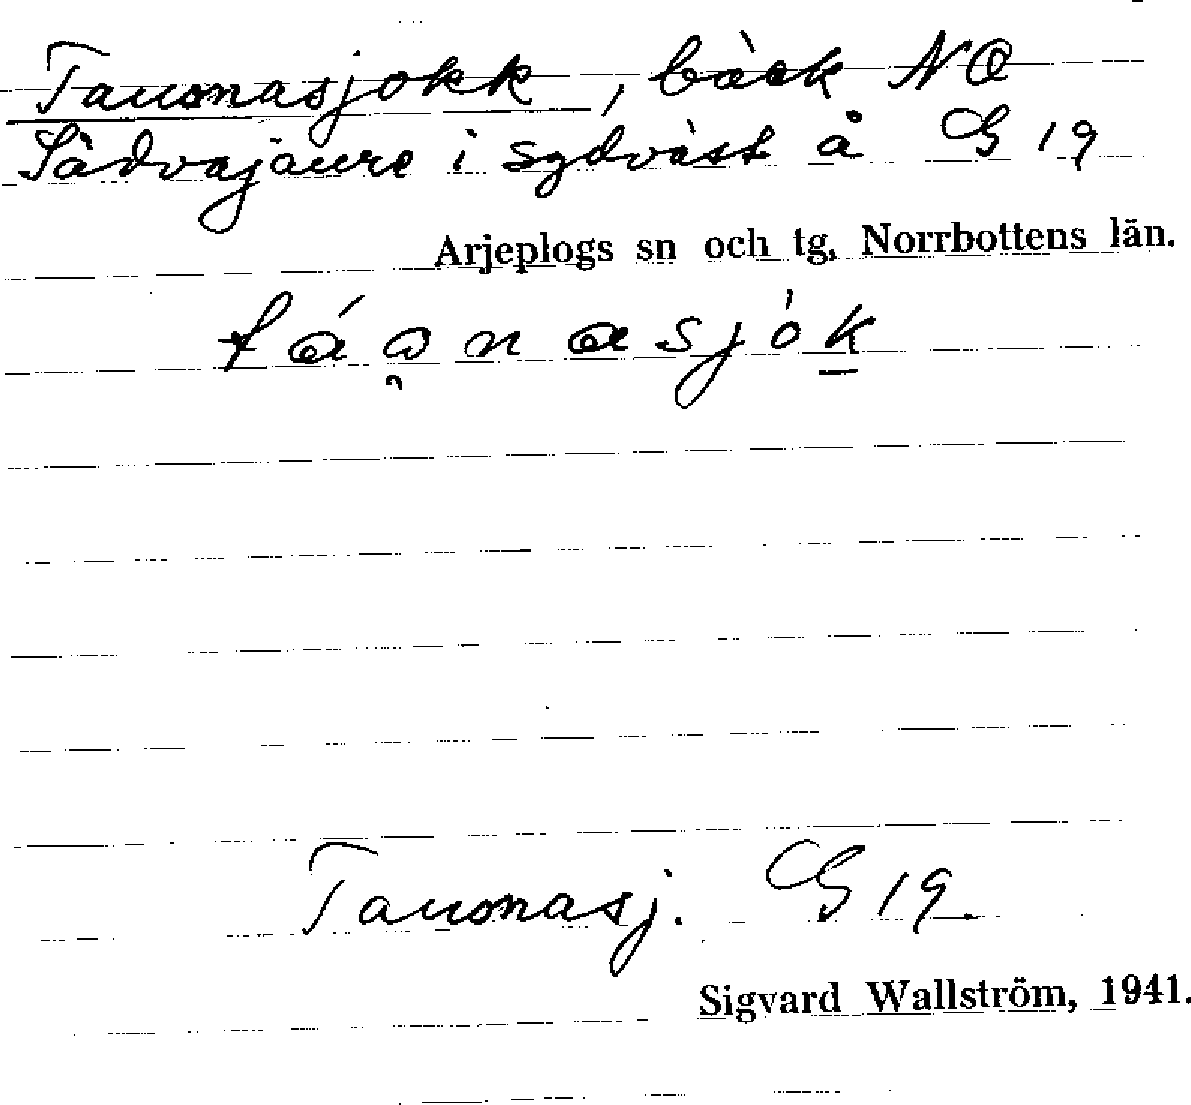 Tauonasjokk, bäck NO
Sädvajaure i sydväst å G 19
Arjeplogs sn och tg, Norrbottens län.
Tauonasj. G 19.
Sigvard Wallström, 1941.